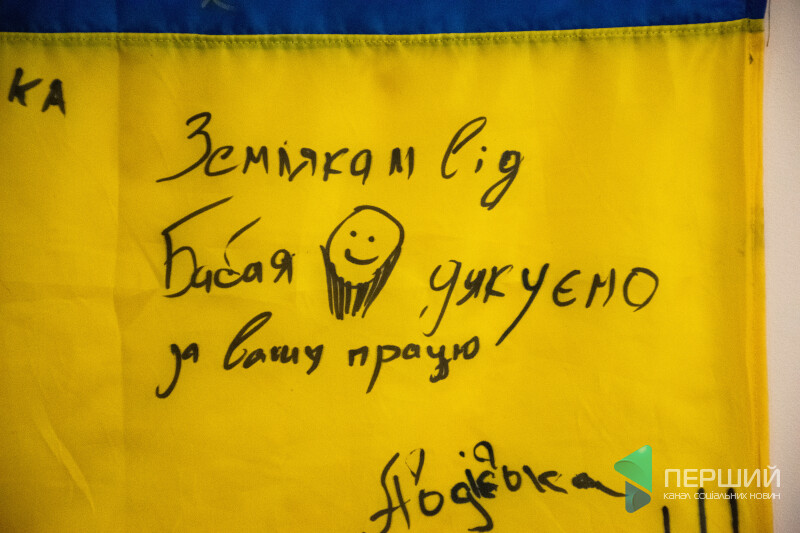 ка
Землякам від
Бабая дякуємо
за вашу працю
ПЕРШИЙ
КАНАЛ СОЦІАЛЬНИХ НОВИН